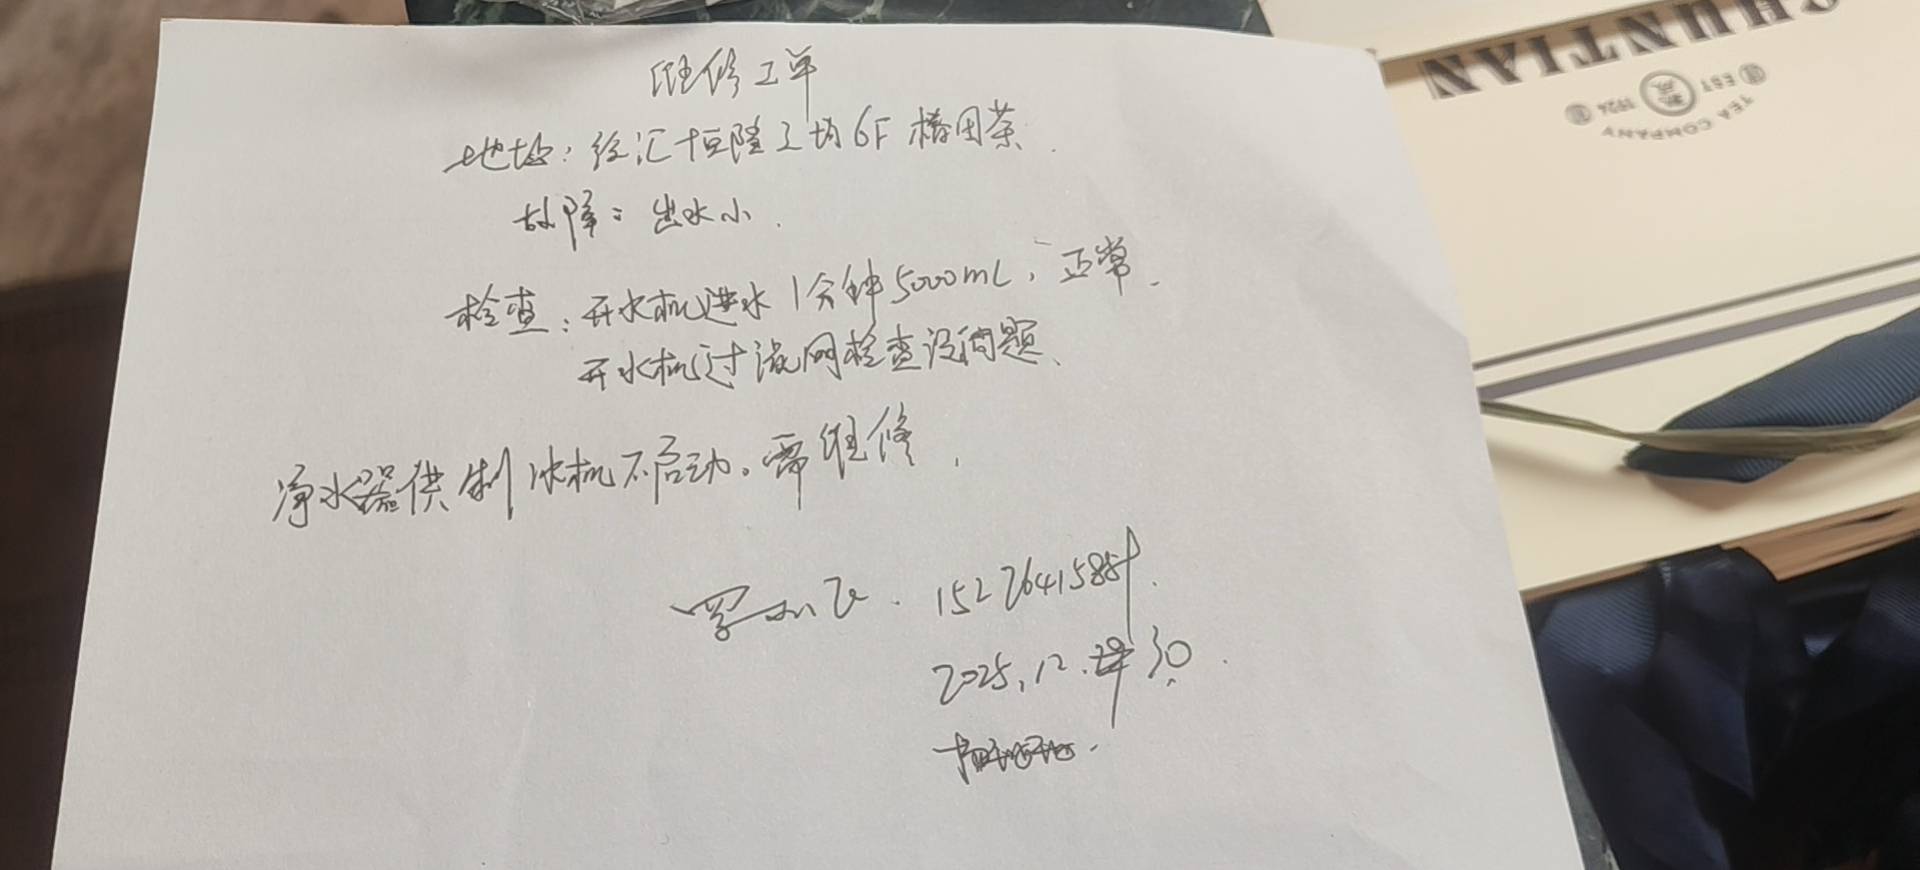 维修工单
地址：徐汇恒隆广场6F 椿田茶.
故障：出水小.
检查：开水机进水1分钟5000mL，正常.
开水机过滤网检查没问题、
净水器供制冰机不启动。需维修.
2025.12. 30.
CHUNTIAN
EST 1924
TEA COMPANY